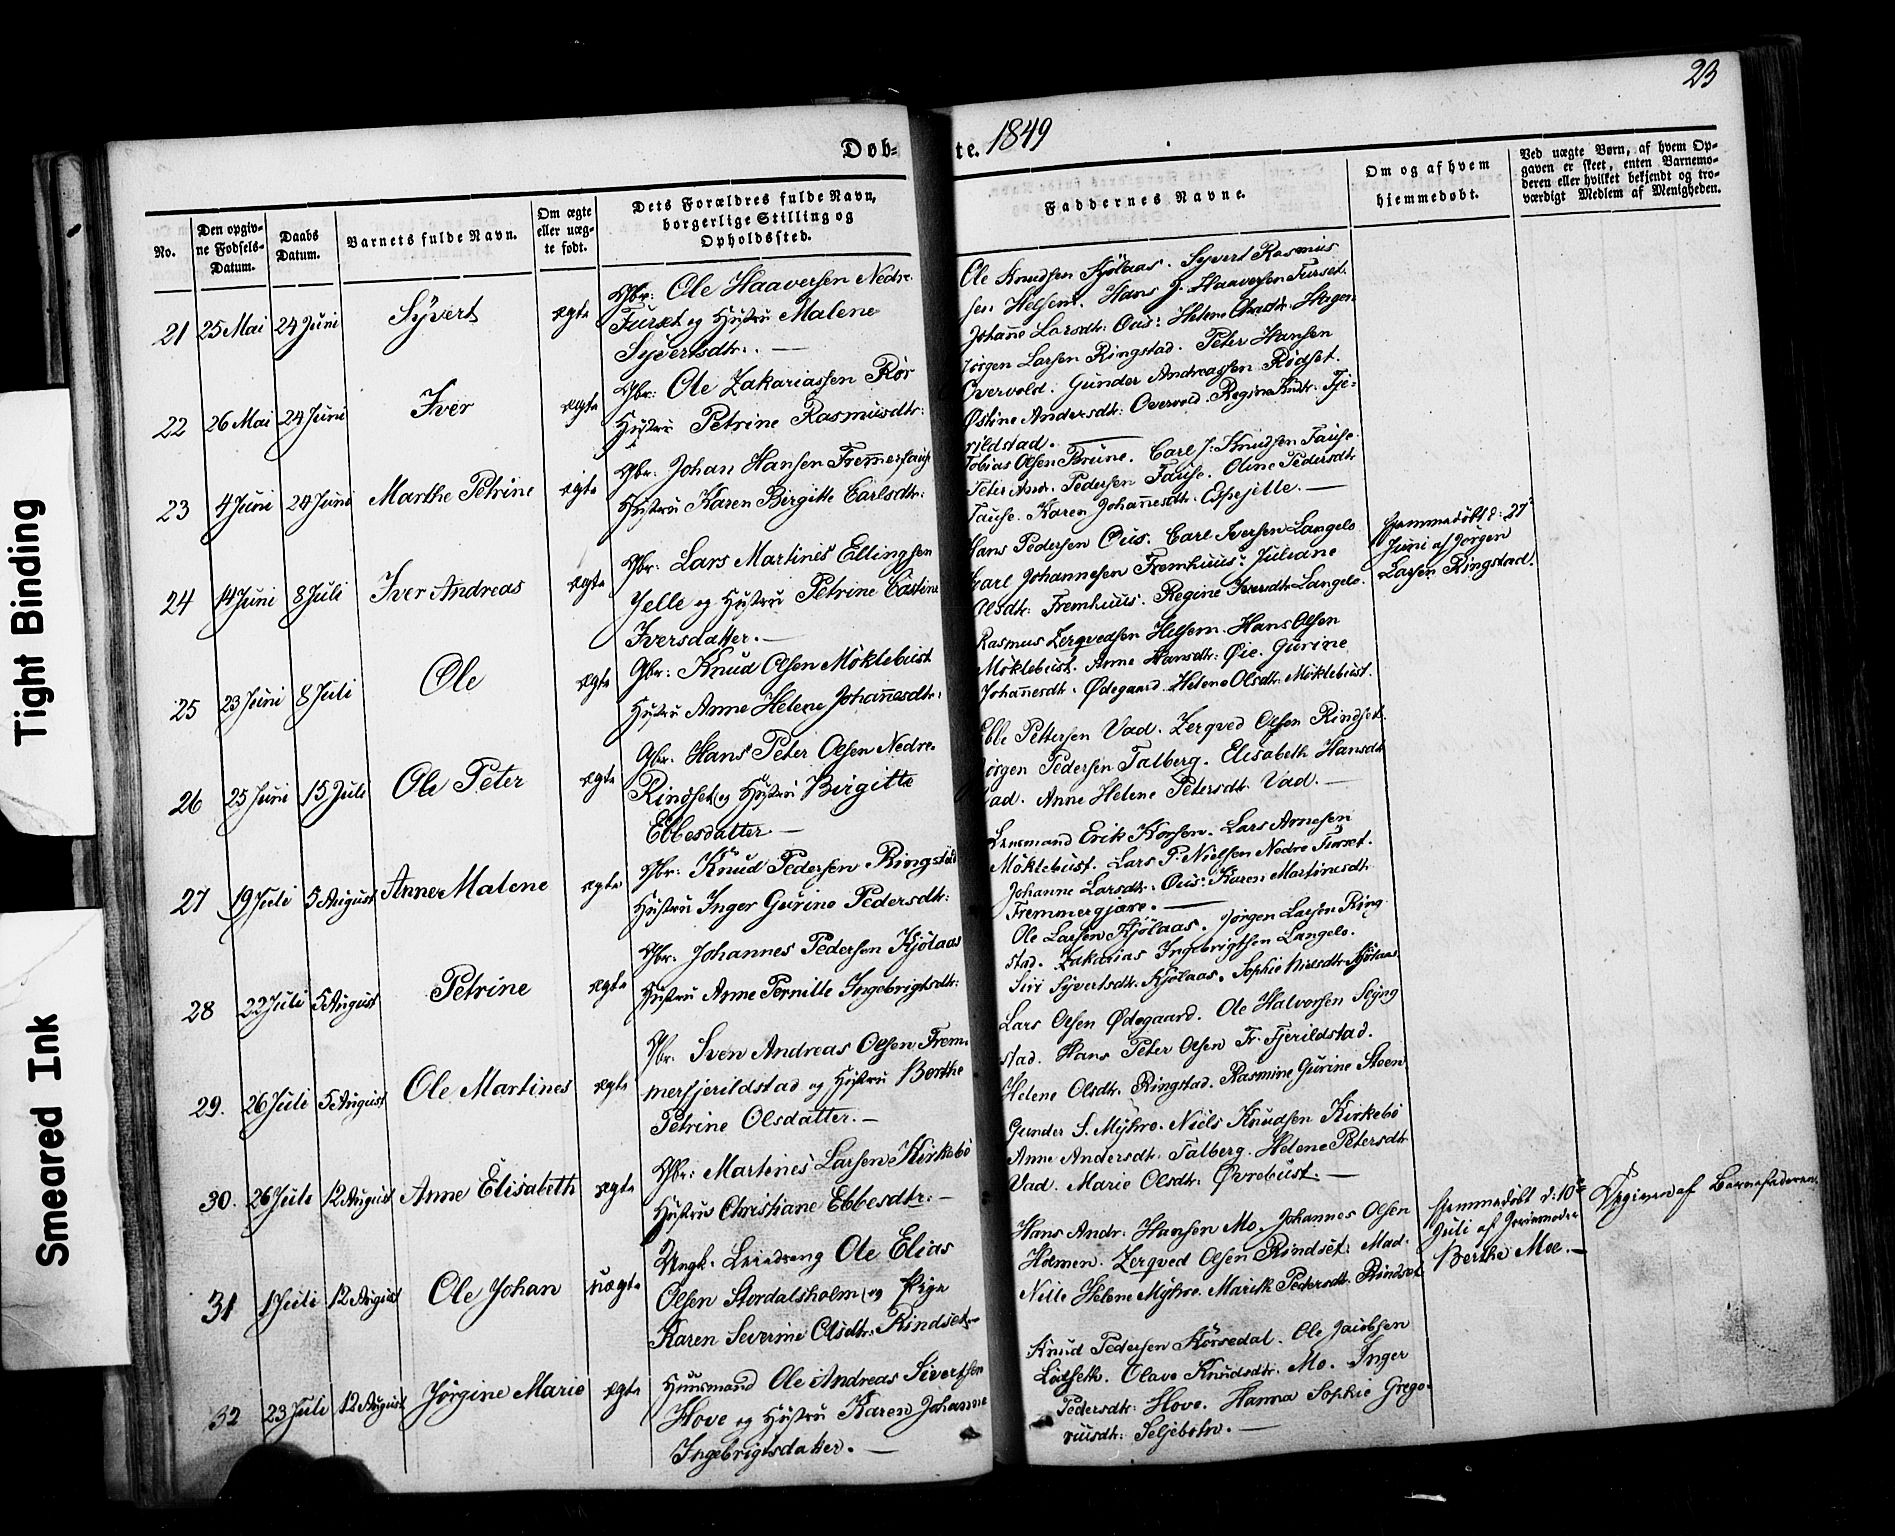 23
Døb- te. 1849
No.
Den opgiv-
ne Fødsels-
Datum.
Daabs
Datum.
Barnets fulde Navn.
Om ægte
eller uæg-
te født.
Dets Forældres fulde Navn,
borgerlige Stilling og
Opholdssted.
Faddernes Navne.
Om og af hvem
hjemmedøbt.
Ved uægte Børn, af hvem Op-
gaven er skeet, enten Barnemo-
deren eller hvilket bekjendt og tro-
værdigt Medlem af Menigheden.
21 25 Mai 24 Juni Syvert ægte
Gbr: Ole Haaversen Nedre
Furset og Hustru Malene
Syvertsdtr: . —
Ole Knudsen Kjölaas. Syvert Rasmus
sen Helsem. Hans J. Haaversen Furset.
Johanne Larsdtr: Ous:
22 26 Mai 24 Juni Iver ægte
Gbr: Ole Zakariassen Rör
Hustru Petrine Rasmusdtr:
Jörgen Larsen Ringstad. Peter Hansen
Overvold. Gunder Andreassen Rödset.
Östine Andersdtr: Overvold. Regine Knudtr: Fje-
rildstad. —
23 4 Juni 24 Juni Marthe Petrine ægte
Gbr: Johan Hansen Fremmerhaug
Hustru Karen Birgitte Carlsdtr:
Tobias Olsen Brune. Carl J: Knudsen Fause.
Peter Andr. Pedersen Fause. Oline Pedersdtr
Fause. Karen Johannesdtr. —
24 14 Juni 8 Juli Iver Andreas ægte
Gbr: Lars Martines Ellingsen
Jelle og Hustru Petrine Eastine
Iversdatter. —
Hans Pedersen Ous. Carl Iversen Langelo
Carl Johannesen Fremhuus: Juliane
Olsdtr: Fremhuus. Regine Iversdtr Langelo.
Hjemmedöbt d: 27
Juni af Jörgen
Larsen Ringstad.
25 23 Juni 8 Juli Ole ægte
Gbr: Knud Olsen Möklebust
Hustru Anne Helene Johannesdtr:
Rasmus Zerqvedsen Helsem. Hans Olsen
Möklebust. Anne Hansdtr: Øie. Gurine
Johannesdtr. Ødegaard. Helene Olsdtr. Möklebust.
26 25 Juni 15 Juli Ole Peter ægte
Gbr. Hans Peter Olsen Nedre
Rindset og Hustru Birgitte
Ebbesdatter. —
Ebbe Pettersen Vad. Zerqved Olsen Rindset.
Jörgen Pedersen Talberg. Elisabeth Hansdtr
Vad. Anne Helene Petersdtr. Vad. —
27 19 Juli 5 August Anne Malene ægte
Gbr: Knud Pedersen Ringstad
Hustru Inger Gurine Pedersdtr:
Lensmand Erik Korsen. Lars Arnesen
Möklebust. Lars P. Nielsen Nedre Furset.
Johanne Larsdtr. Ous: Karen Martinusdtr.
Fremmergjære. —
28 22 Juli 5 August Petrine ægte
Gbr. Johannes Pedersen Kjölaas
Hustru Anne Pernille Ingebrigtsdtr:
Ole Larsen Kjölaas. Jörgen Larsen Ring
stad. Zakarias Ingebrigtsen Langelo.
Siri Syvertsdtr. Kjölaas. Sophie Nielsdtr Kjölaas
29. 26 Juli 5 August Ole Martines ægte
Gbr. Sven Andreas Olsen Frem-
merfjerildstad og Hustru Berthe
Petrine Olsdatter. —
Lars Olsen Ødegaard. Ole Halversen Seyng
stad. Hans Peter Olsen Fr. Fjerildstad.
Helene Olsdtr. Ringstad. Rasmine Gurine Steen
30. 26 Juli 12 August Anne Elisabeth ægte
Gbr: Martines Larsen Kirkebö
Hustru Christiane Ebbesdtr: —
Gunder S. Myhre. Niels Knudsen Kirkebö
Anne Andersdtr. Talberg. Helene Petersdtr
Vad. Marie Olsdtr: Øvrebust. —
31 1 Juli 12 August Ole Johan uægte
Ungk. Leiedreng Ole Elias
Olsen Stordalsholm og Pige
Karen Severine Olsdtr. Rindset.
Hans Andr. Hansen Mo. Johannes Olsen
Holmen. Zerqved Olsen Rindset: Mad.
Nille Helene Myhre. Marith Pedersdtr. Rindset
Hjemmedöbt d: 10de
Juli af Jordemoder
Berthe Moe. —
Opgiven af Barnefaderen.
32 23 Juli 12 August Jörgine Marie ægte
Huusmand Ole Andreas Sivertsen
Hove og Hustru Karen Johanne
Ingebrigtsdatter. —
Knud Pedersen Korsedal. Ole Jacobsen
Lödseth. Olave Knudsdtr. Mo. Inger
Pedersdtr: Hove. Hanna Sophie Grego-
riusdtr: Seljebotn. —
Tight Binding
Smeared Ink